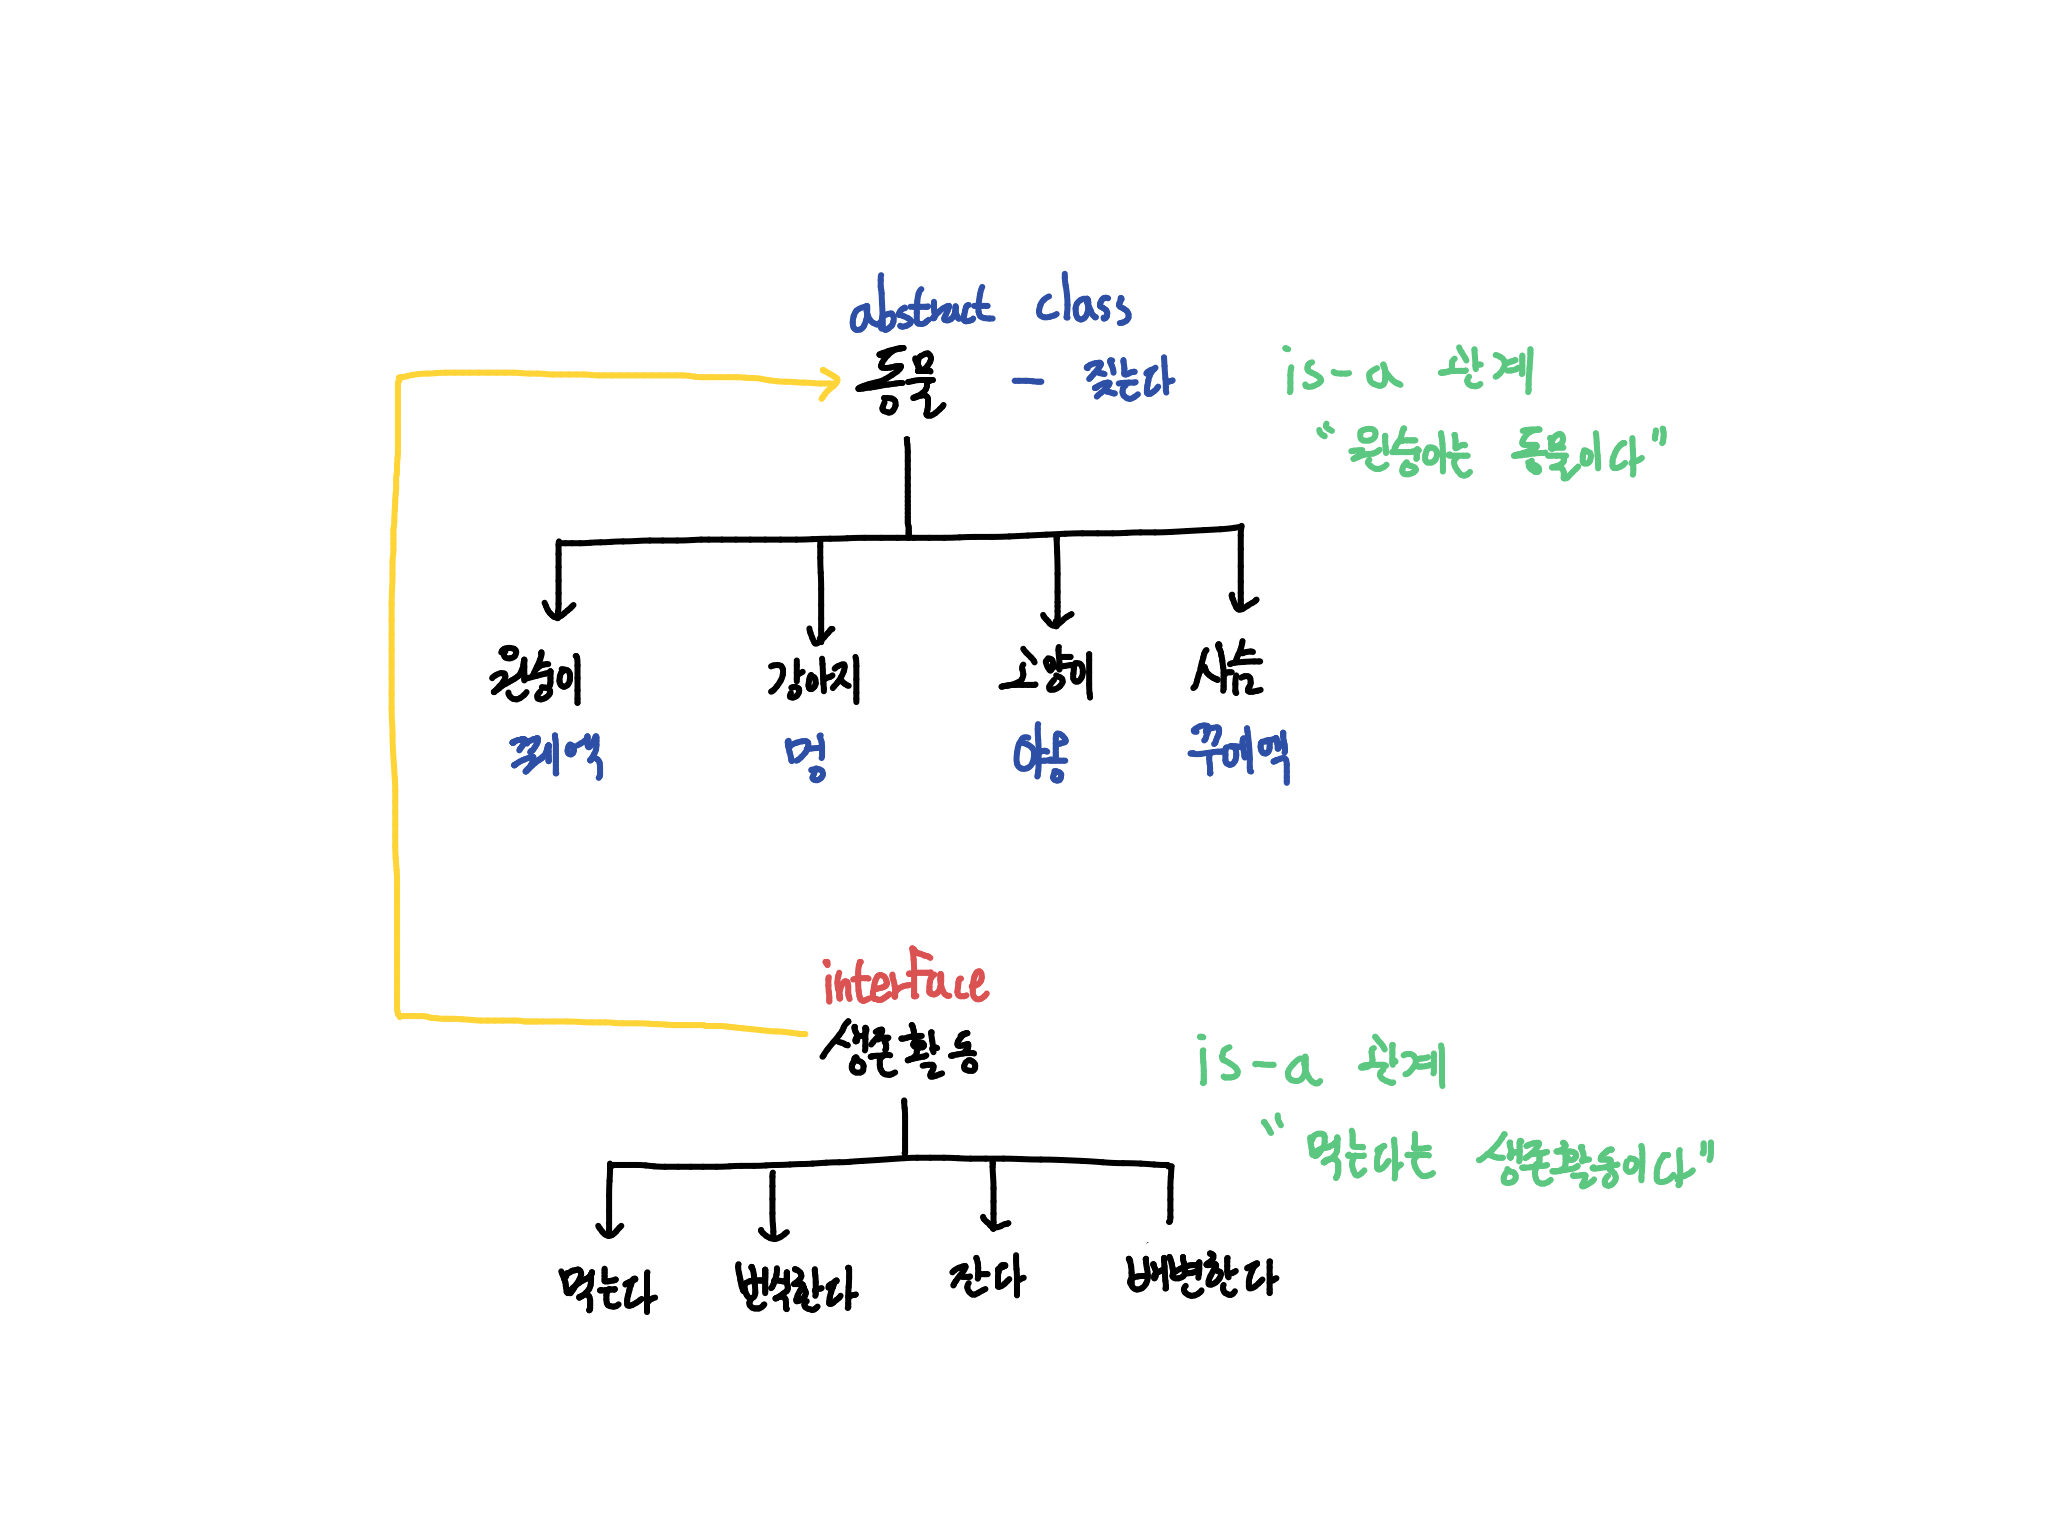 abstract class
동물 - 짖는다
is-a 관계
"원숭이는 동물이다"
원숭이 강아지 고양이 사슴
꿰엑 멍 야옹 꾸에엑
interface
생존활동
is-a 관계
"먹는다는 생존활동이다"
먹는다 번식한다 잔다 배변한다